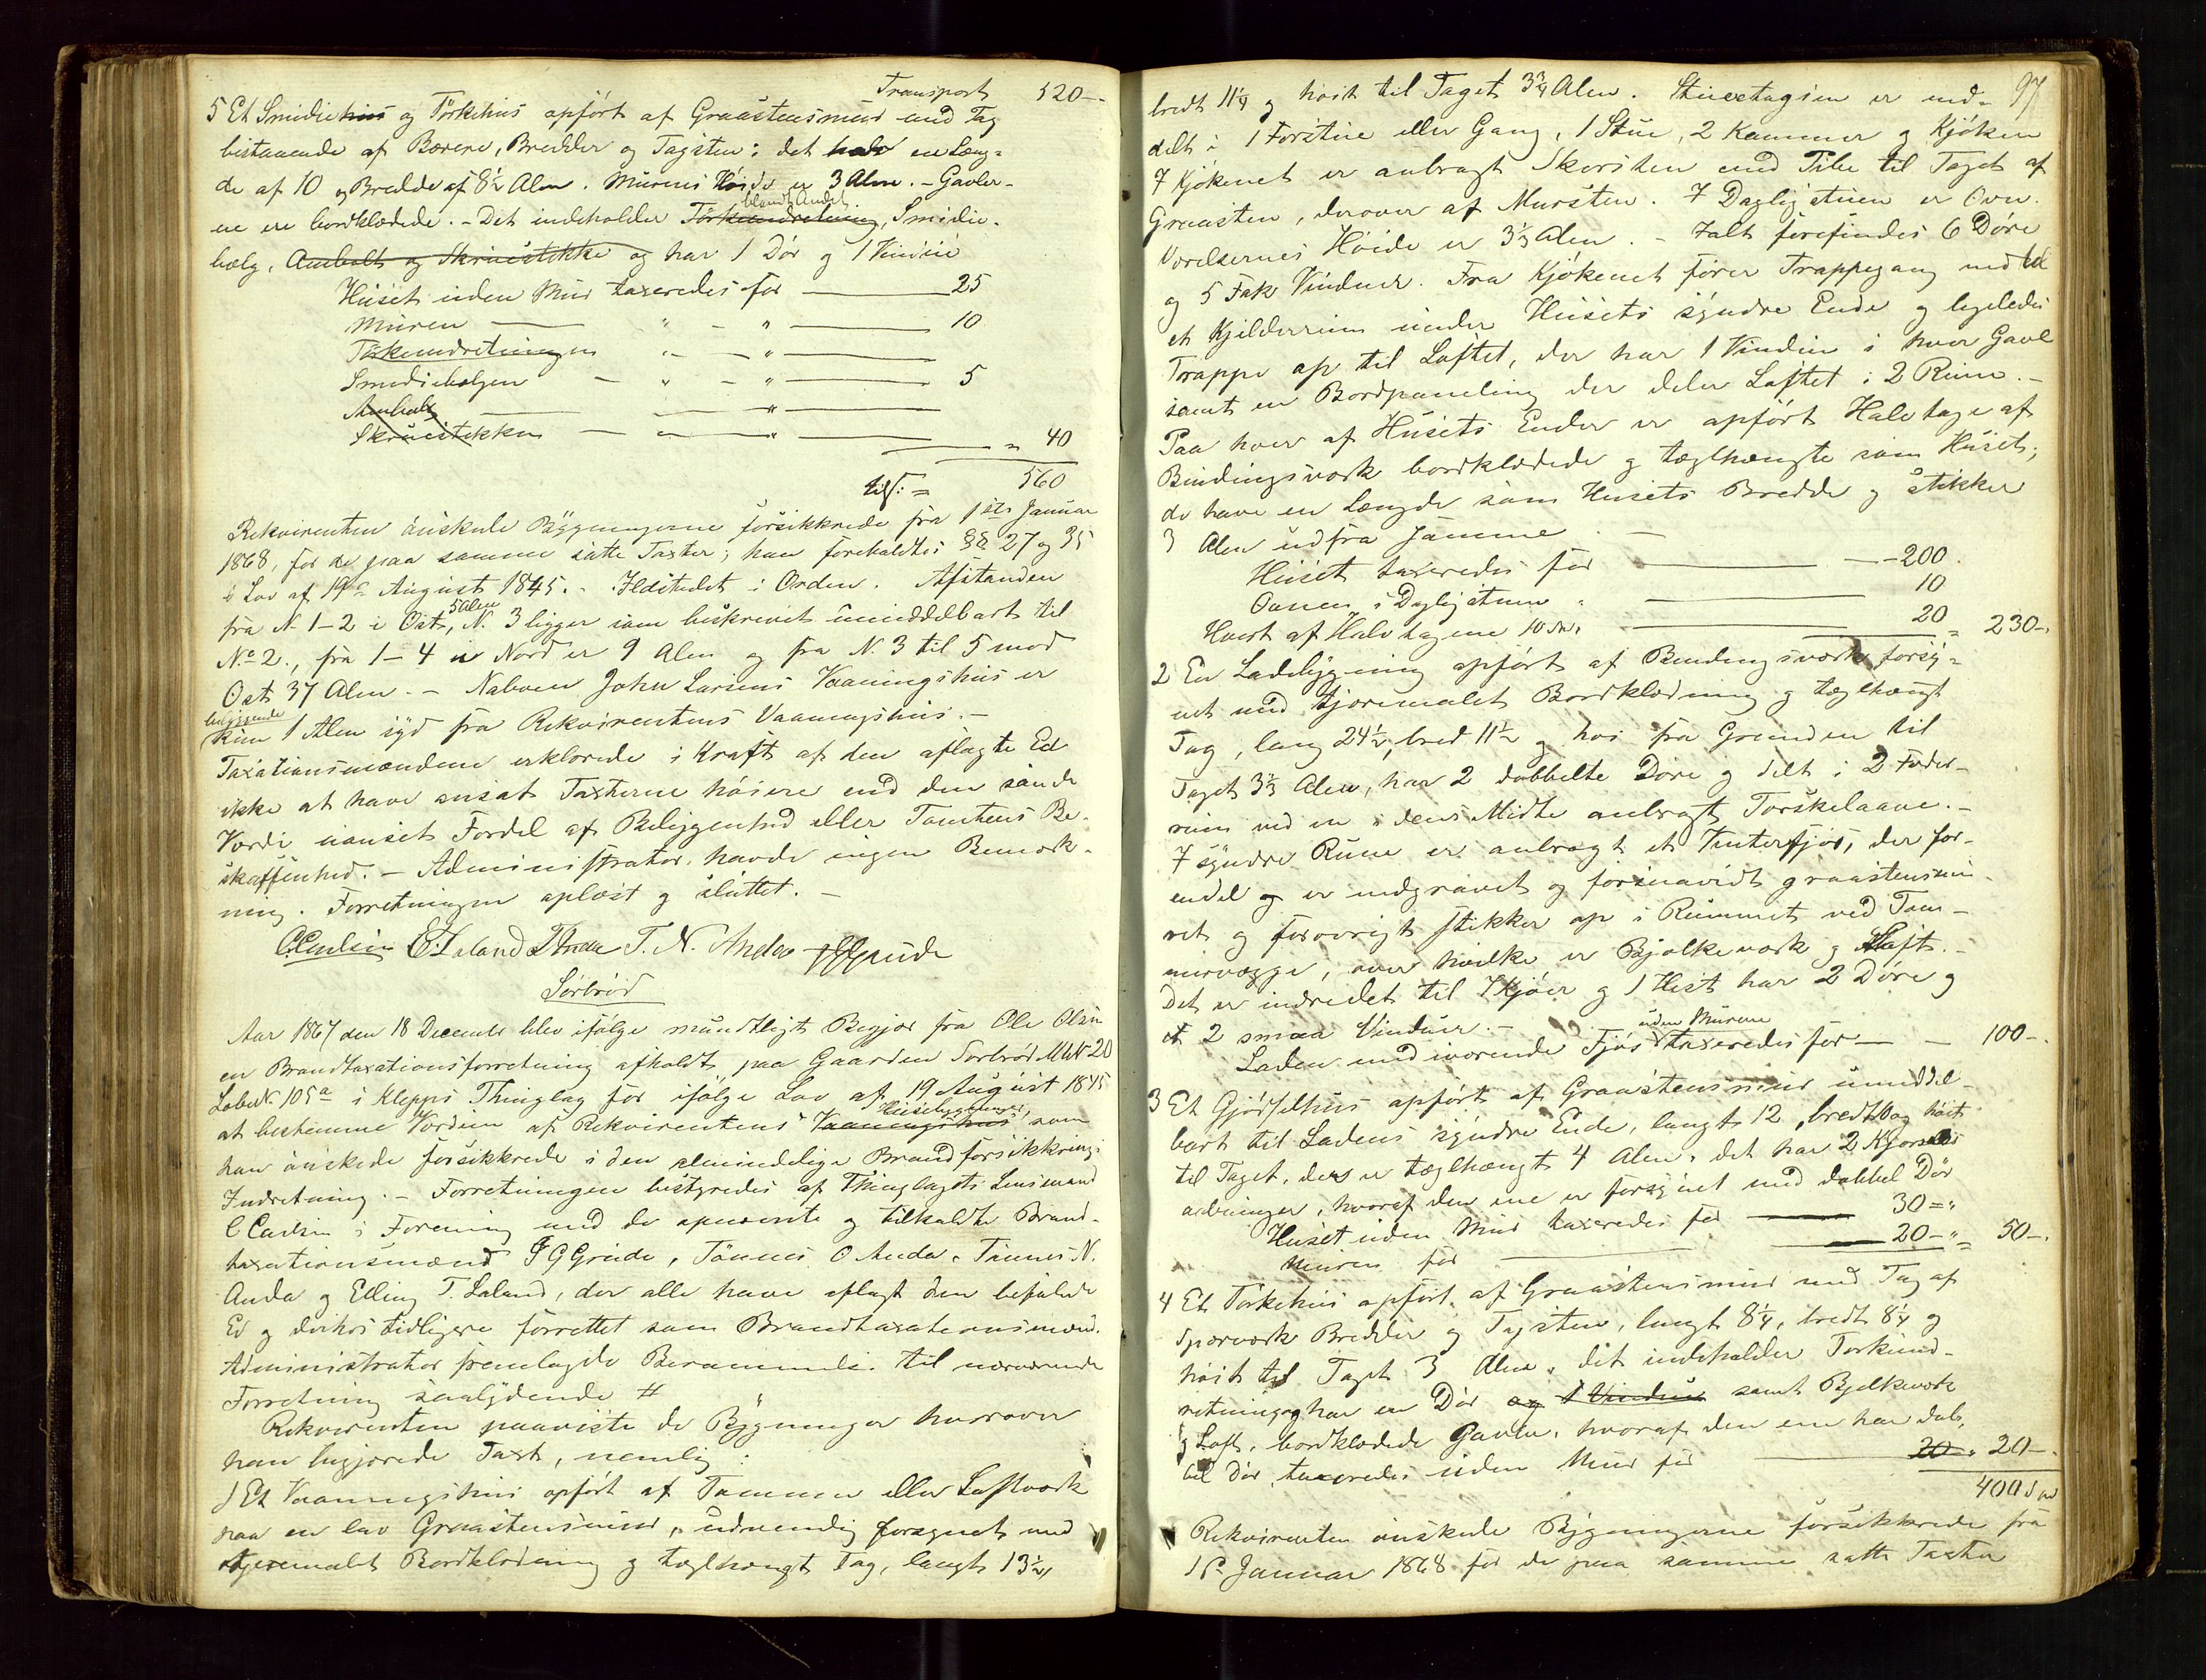 Transport 520 -
5 Et Smidiehus og Törkehus opfört af Graastensmur med Tag
bestaaende af Bærere, Bredder og Tagsten; det har en Læng-
de af 10 og Bredde af 8½ Alen. Murens Höide er 3 Alen. - Gavler-
ne ere bordklædede. - Det indeholder blandt Andet Törkeindretning, Smidie-
bælg, Ambolt og Skruestikke og har 1 Dör og 1 Vindue
Huset uden Mur taxeredes for — 25
Muren — " - " — 10
Törkeindretningen " - " —
Smediebælgen - " - " — 5
Ambolt — — " —
Skruestikken — — " — " 40
tils: = 560
Rekvirenten önskede Bygningerne forsikkrede fra 1ste Januar
1868, for de paa samme satte Taxter; han foreholdtes §§ 27 og 35
i Lov af 19de August 1845. - Ildstedet i Orden. Afstanden
fra N. 1-2 i Öst, 5 Alen N. 3 ligger som beskrevet umiddelbart til
No 2., fra 1-4 i Nord er 9 Alen og fra N. 3 til 5 mod
Ost 37 Alen. - Naboen John Larsens Vaaningshus er
beliggende
kun 1 Alen syd fra Rekvirentens Vaaningshus. -
Taxationsmændene erklærede i Kraft af den aflagte Ed
ikke at have ansat Taxterne höiere end den sande
Værdi uanset Fordel af Beliggenhed eller Tomtens Be-
skaffenhed. - Administrator havde ingen Bemærk-
ning. Forretningen oplæst og sluttet. -
C. Carlsen E. T. Laland T. N. Anda
Sörbröd
Aar 1867 den 18 December blev ifölge mundtligt Begjær fra Ole Olsen
en Brandtaxationsforretning afholdt paa Gaarden Sörbröd M. N. 20
Löbe N. 105a i Klepps Thinglag for ifölge Lov af 19 August 1845
at bestemme Værdien af Rekvirentens Vaaningshus Husebygninger, som
han önskede forsikkrede i den almindelige Brandforsikkrings
Indretning. - Forretningen bestyredes af Thinglagets Lensmand
C Carlsen i Forening med de opnævnte og tilkaldte Brand-
taxationsmænd G Grude, Tönnes O Anda, Tönnes N.
Anda og Elling T. Laland, der alle have aflagt den befalede
Ed og derhos tidligere forrettet som Brandtaxationsmænd.
Administrator fremlagde Berammelse til nærværende
Forretning saalydende #
Rekvirenten paaviste de Bygninger hvorover
han begjærede Taxt, nemlig:
1 Et Vaaningshus opfört af Tömmer eller Laftværk
paa en lav Graastensmur, udvendig forsynet med
tjæremalet Bordklædning og teglhængt Tag, langt 13½,
97
bredt 11¼ og höit til Taget 3¾ Alen. Stueetagien er ind-
delt i 1 Forstue eller Gang, 1 Stue, 2 Kammer og Kjöken
I Kjökenet er anbragt Skorsten med Pibe til Taget af
Graasten, derover af Mursten. I Dagligstuen er Ovn.
Værelsernes Höide er 3⅓ Alen. - Ialt forefindes 6 Döre
og 5 Fak Vinduer. Fra Kjökenet förer Trappegang ned til
et Kjelderrum under Husets syndre Ende og ligeledes
Trappe op til Loftet, der har 1 Vindue i hver Gavl
samt en Bordpaneling der deler Loftet i 2 Rum. -
Paa hver af Husets Ender er opfört Halvtage af
Bindingsværk bordklædede og teglhængte som Huset;
de have en Længde som Husets Bredde og stikker
3 Alen ud fra samme. -
Huset taxeredes for — 200.
Ovnen i Dagligstuen " — 10
Hvert af Halvtagene 10 Sp. — 20 = 230 -.
2 En Ladebygning opfört af Bindingsværk forsy-
net med tjæremalet Bordklædning og teglhængt
Tag, lang 24½, bred 11½ og höi fra Grunden til
Taget 3⅓ Alen, har 2 dobbelte Döre og delt i 2 Foder-
rum ved en i dens Midte anbragt Torskelaave. -
I syndre Rum er anbragt et Vinterfjös, der for-
endel er nedgravet og forsaavidt graastensmu-
ret og forövrigt stikker op i Rummet ved Töm-
mervægge, over hvilke er Bjælkeværk og Loft. -
Det er indredet til 7 Kjöer og 1 Hest har 2 Döre og
2 smaa Vinduer. -
Laden med iværende Fjös uden Murene taxeredes for — - 100 -.
3 Et Gjödselhus opfört af Graastensmur umiddel-
bart til Ladens syndre Ende, langt 12, bredt og höit
til Taget, der er teglhængt 4 Alen, det har 2 Kjörsels
aabninger, hvoraf den ene er forsynet med dobbel Dör
Huset uden Mur taxeredes for — 30 - "
Muren for — 20 - " = 50 -.
4 Et Törkehus opfört af Graastensmur med Tag af
Sparværk Bredder og Tagsten, langt 8¼, bredt 8¼ og
höit til Taget 3 Alen, det indeholder Törkeind-
retning og har en Dör og 1 Vindue samt Bjelkeværk
og Loft, bordklædede Gavle, hvoraf den ene har dob-
bel Dör, taxeredes uden Mur for — 20 " 20 -.
400 Spd
Rekvirenten önskede Bygningerne forsikkrede fra
1ste Januar 1868 for de paa samme satte Taxter